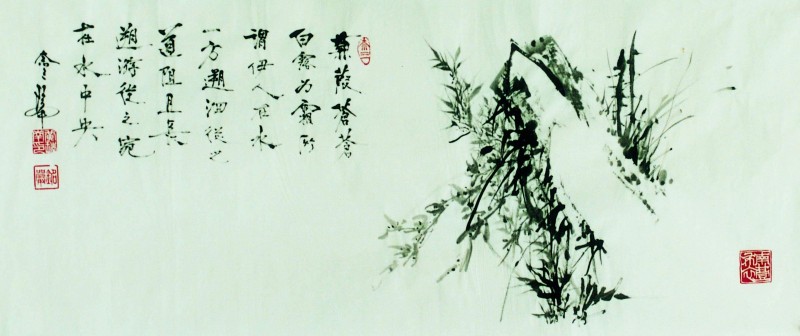 蒹葭蒼蒼
白露為霜所
謂伊人在水
一方遡洄從之
道阻且長
遡游從之宛
在水中央